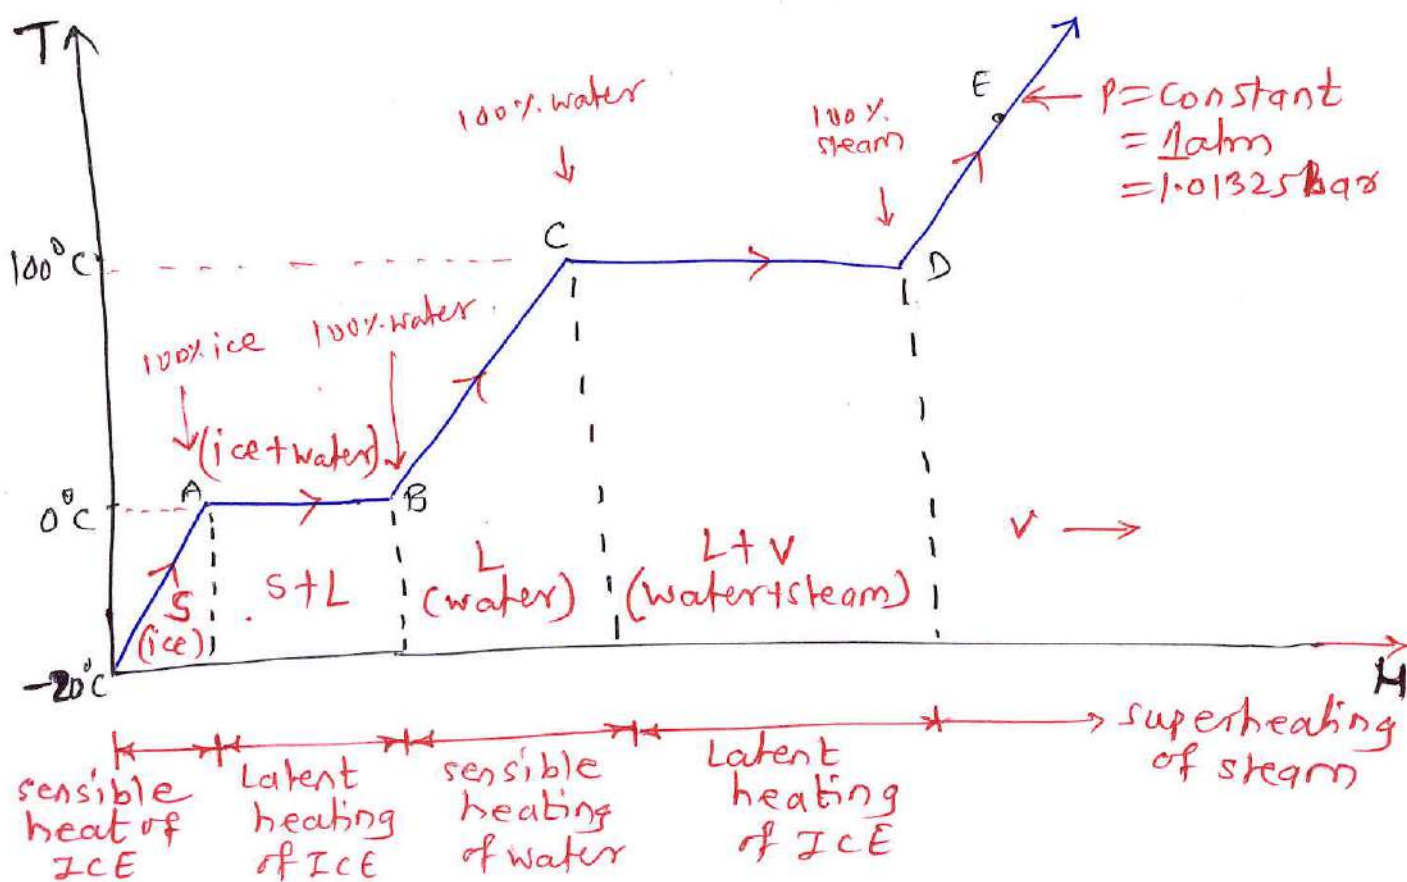 T
E
P=constant
=1atm
=1.01325 bar
100% water
100%
steam
C
100°C
D
100% ice
100% water
(ice+water)
A
B
0°C
S
(ice)
S+L
L
(water)
L+V
(water+steam)
V
-20°C
H
sensible
heat of
ICE
Latent
heating
of ICE
sensible
heating
of water
Latent
heating
of ICE
superheating
of steam